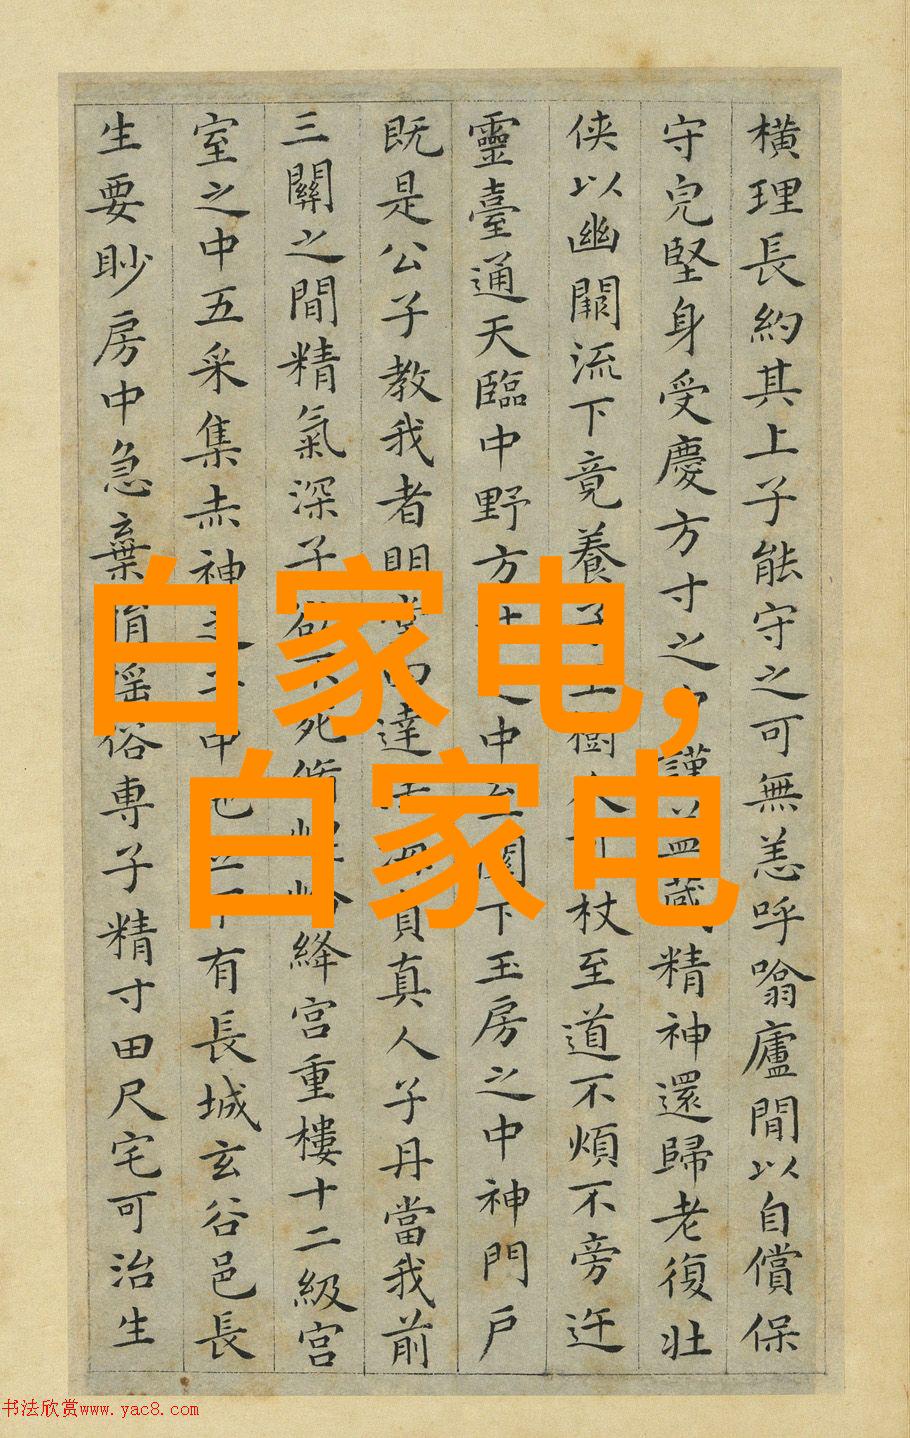 橫理長約其上子能守之可無恙呼噏廬間以自償保
守完堅身受慶方寸之中謹蓋藏精神還歸老復壯
俠以幽闕流下竟養子玉樹令可杖至道不煩不旁迕
靈臺通天臨中野方寸之中至關下玉房之中神門戶
既是公子教我者明堂四達法海員真人子丹當我前
三關之間精氣深子欲不死脩崐崘絳宮重樓十二級宮
室之中五采集赤神之子中池立下有長城玄谷邑長
生要眇房中急棄捐搖俗専子精寸田尺宅可治生
白家电,
白家电
书法欣赏www.yac8.com